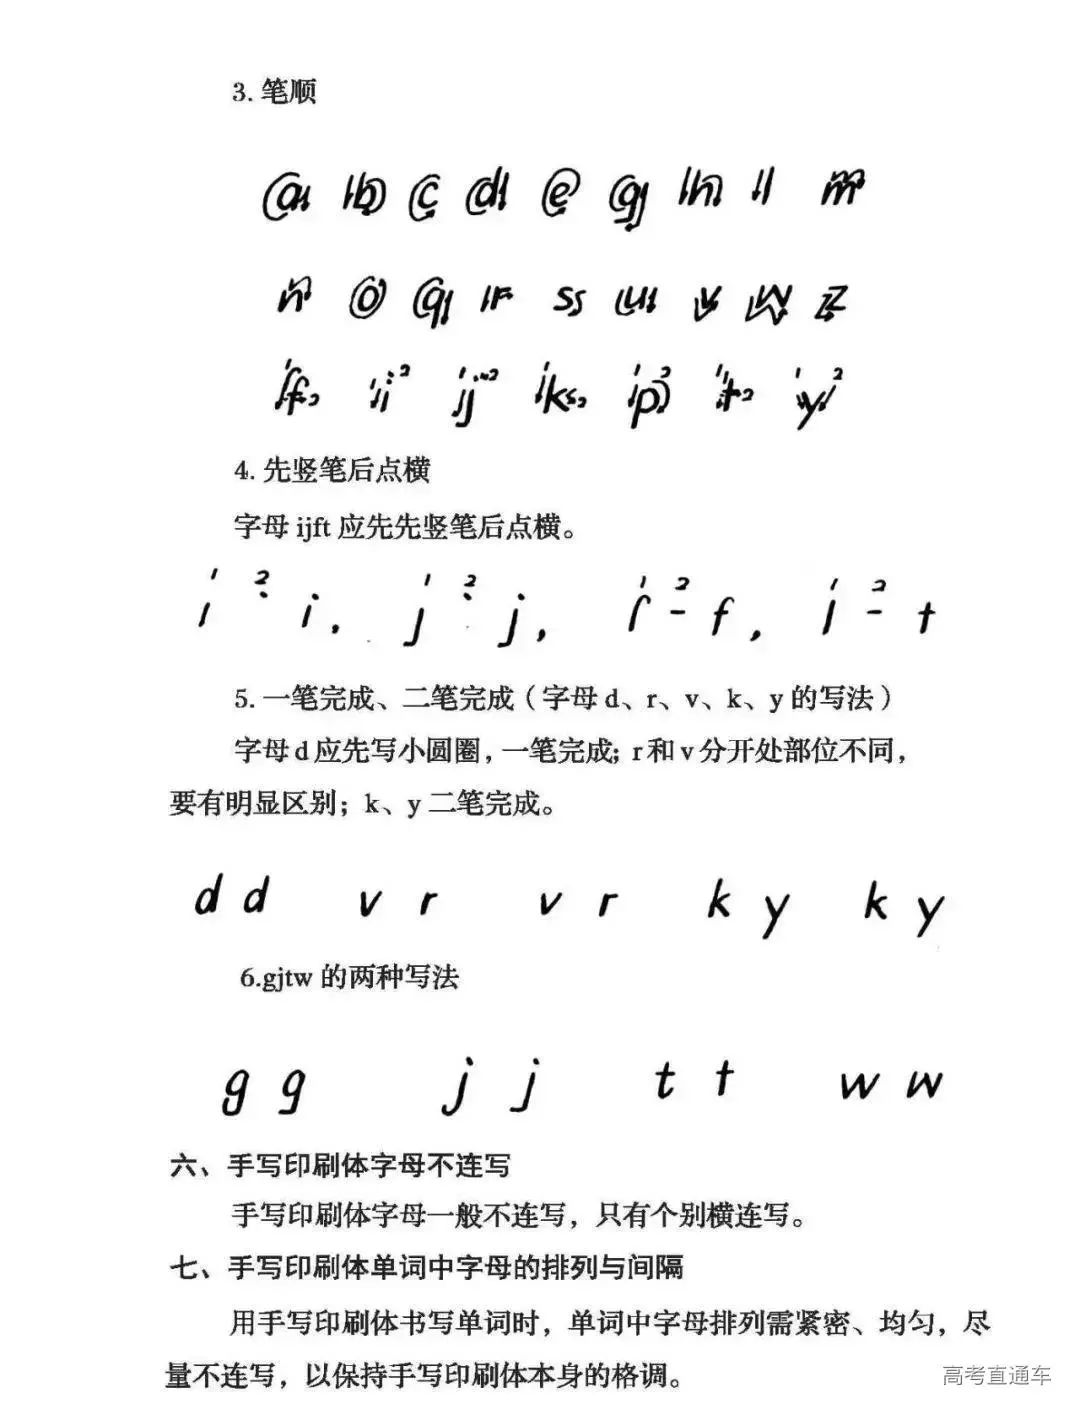 3. 笔顺
a b c d e g h l m
n o q r s u v w z
1 f 2 1 i 2 1 j 2 1 k 2 1 p 2 1 t 2 1 y 2
4. 先竖笔后点横
字母 ijft 应先先竖笔后点横。
1 2 1 2 1 2 1 2
i, j, f, t
5. 一笔完成、二笔完成（字母 d、r、v、k、y 的写法）
字母 d 应先写小圆圈，一笔完成；r 和 v 分开处部位不同，
要有明显区别；k、y 二笔完成。
d d v r v r k y k y
6.gjtw 的两种写法
g g j j t t w w
六、手写印刷体字母不连写
手写印刷体字母一般不连写，只有个别横连写。
七、手写印刷体单词中字母的排列与间隔
用手写印刷体书写单词时，单词中字母排列需紧密、均匀，尽
量不连写，以保持手写印刷体本身的格调。
高考直通车